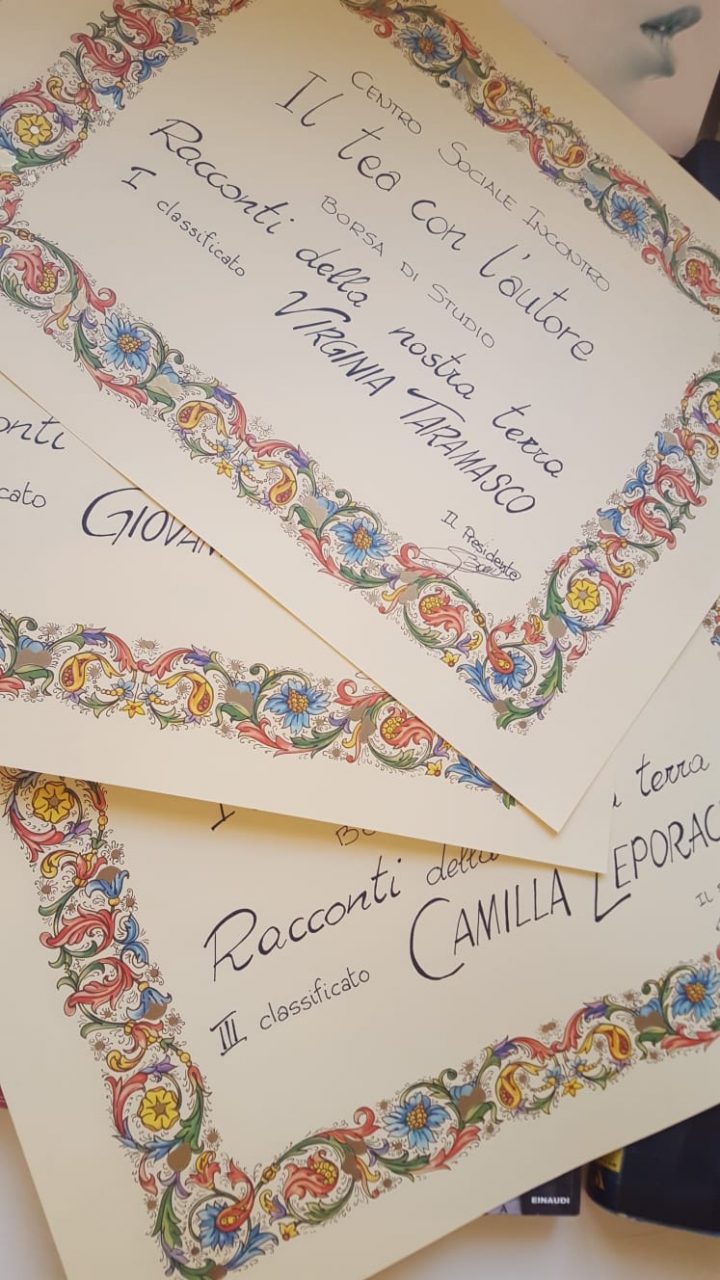 CENTRO SOCIALE INCONTRO
Il tea con l'autore
BORSA DI STUDIO
Racconti della nostra terra
I classificato
VIRGINIA TARAMASCO
Il Presidente
onti
cato
GIOVAN
terra
Racconti della
III classificato
CAMILLA LEPORAC
IL
EINAUDI